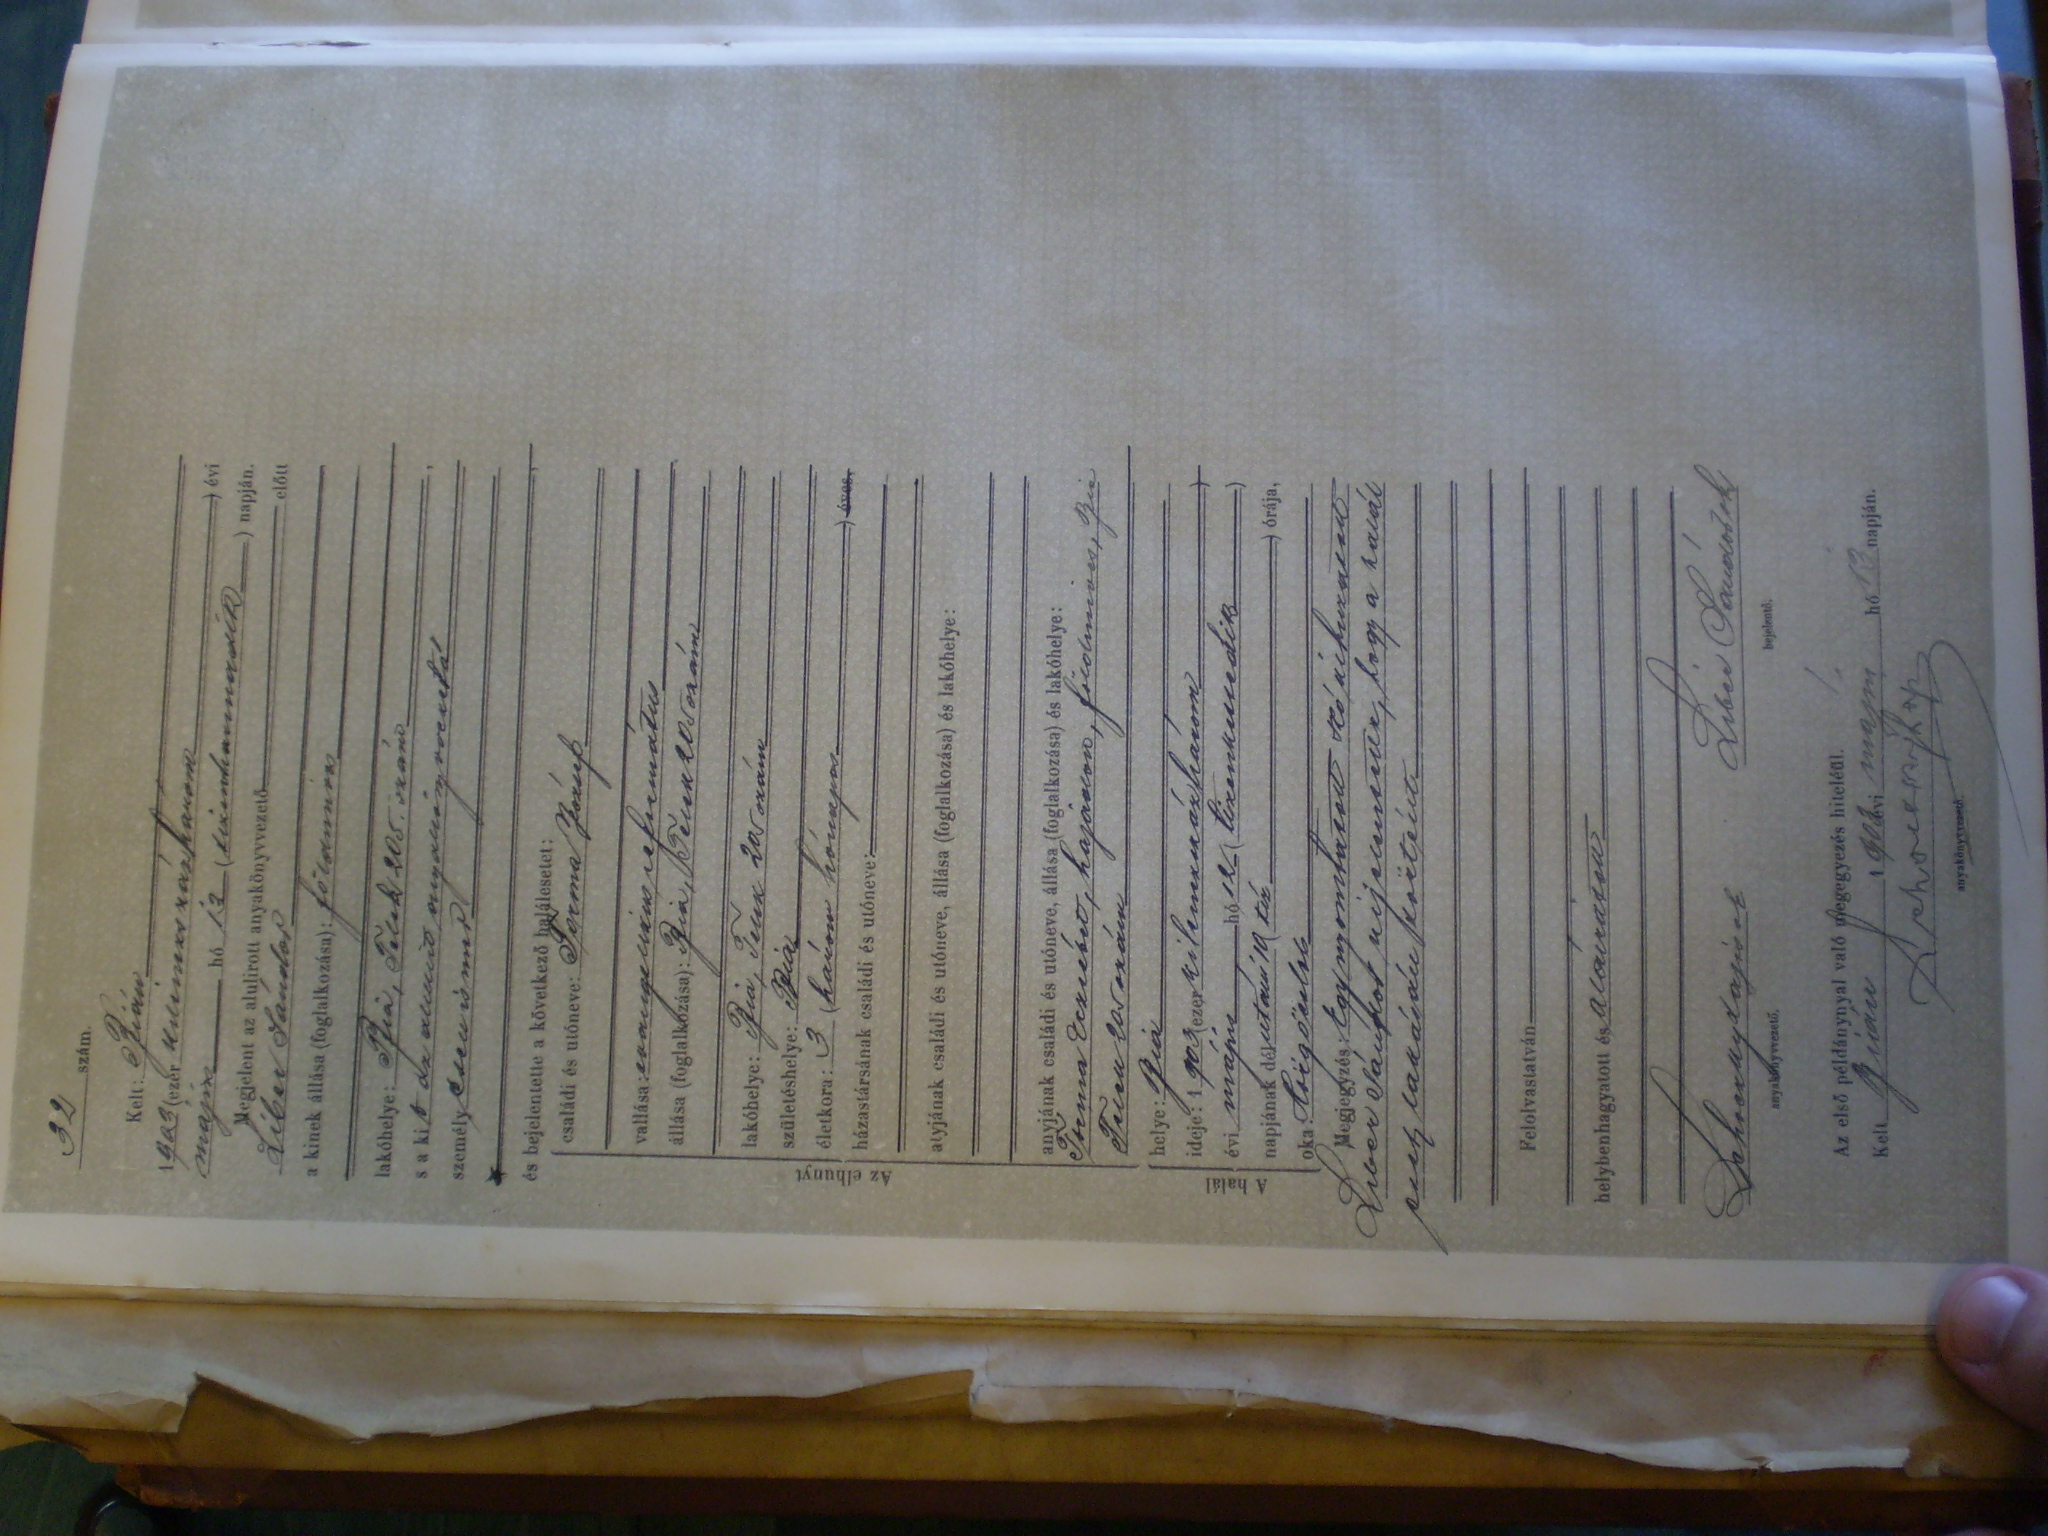 32 szám.
Kelt: Bián
1903 (ezer kilenczszázhárom
) évi
május hó 13 (tizenharmadik) napján.
Megjelent az alulirott anyakönyvvezető előtt
Liber Sándor
a kinek állása (foglalkozása): földmives
lakóhelye: Bia, Telek 205. szám
s a kit az alulirott anyakönyvvezető
személyesen ismer
és bejelentette a következő halálesetet:
Az elhunyt
családi és utóneve: Torma József
vallása: evangelikus református
állása (foglalkozása): Bia, Telek 205 szám
lakóhelye: Bia, Telek 205 szám
születéshelye: Bia
életkora: 3 (három hónapos) éves,
házastársának családi és utóneve:
atyjának családi és utóneve, állása (foglalkozása) és lakóhelye:
anyjának családi és utóneve, állása (foglalkozása) és lakóhelye:
Torma Erzsébet, hajadon, földmives, Bia
Telek 205 szám
A halál
helye: Bia
ideje: 1903 (ezer kilenczszázhárom)
évi május hó 12 (tizenkettedik)
napjának délután 10 (tíz) órája,
oka:
Megjegyzés: Egy nyomtatott szó kihúzatott
Liber Sándor kijelentette, hogy a halál
saját lakásán történt
Felolvastatván
helybenhagyatott és aláiratott
anyakönyvvezető.
Liber Sándor
bejelentő.
Az első példánynyal való megegyezés hiteléül.
Kelt Bián 1903 évi május hó 13 napján.
anyakönyvvezető.